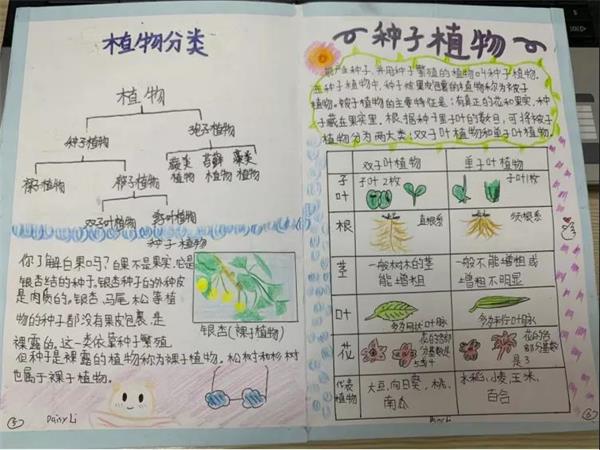 植物分类
植物
种子植物
孢子植物
蕨类
植物
苔藓
植物
藻类
植物
裸子植物
被子植物
双子叶植物
单子叶植物
种子植物
你了解白果吗？白果不是果实，它是
银杏结的种子。银杏种子的外种皮
是肉质的。银杏、马尾松等植
物的种子都没有果皮包裹，是
裸露的。这一类依靠种子繁殖
但种子是裸露的植物称为裸子植物。松树和杉树
也属于裸子植物。
银杏（裸子植物）
Dainy Li
种子植物
能产生种子，并用种子繁殖的植物叫种子植物。
在种子植物中，种子被果皮包裹的植物称为被子
植物。被子植物的主要特征是：有真正的花和果实，种
子藏在果实里。根据种子里子叶的数目，可将被子
植物分为两大类：双子叶植物和单子叶植物。
双子叶植物
单子叶植物
子叶
子叶2枚
子叶1枚
根
直根系
须根系
茎
一般树木的茎
能增粗
一般不能增粗或
增粗不明显
叶
多为网状叶脉
多为平行叶脉
花
花的各部分基数是
5或4
花的各部分基数
是3
代表
植物
大豆，向日葵，桃，
南瓜
水稻，小麦，玉米，
百合
Dainy Li